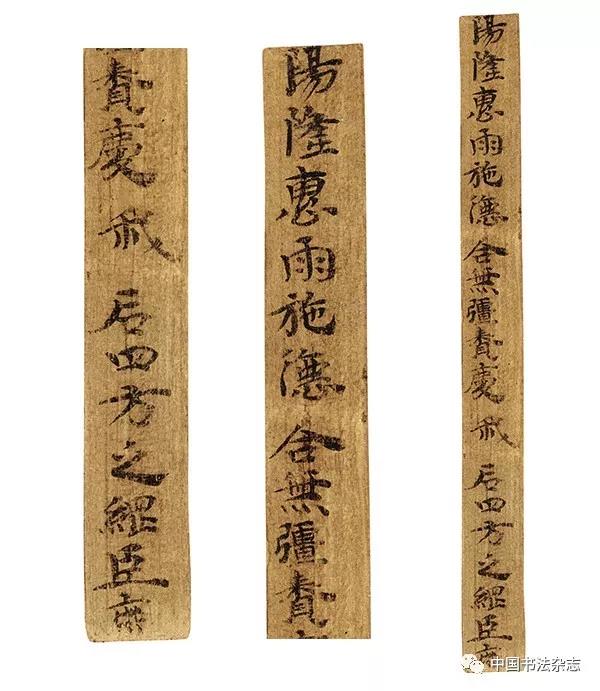 陽隆惠雨施德合無彊賫慶后四方之經臣
陽隆惠雨施德合無彊賫
賫慶后四方之經臣
中国书法杂志